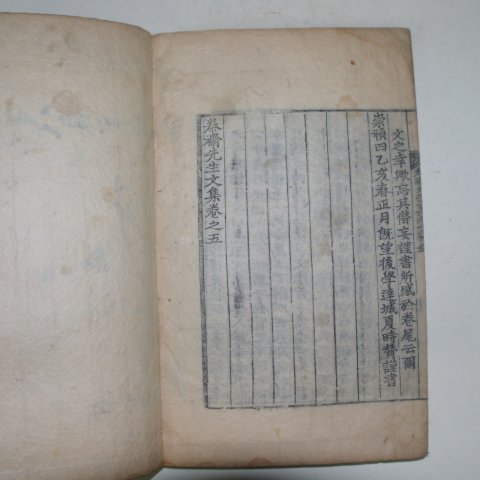 文之幸歟忘其僭妄謹書所感於卷尾云爾
崇禎四乙亥春正月旣望後學達城夏時贊謹書
春齋先生文集卷之五